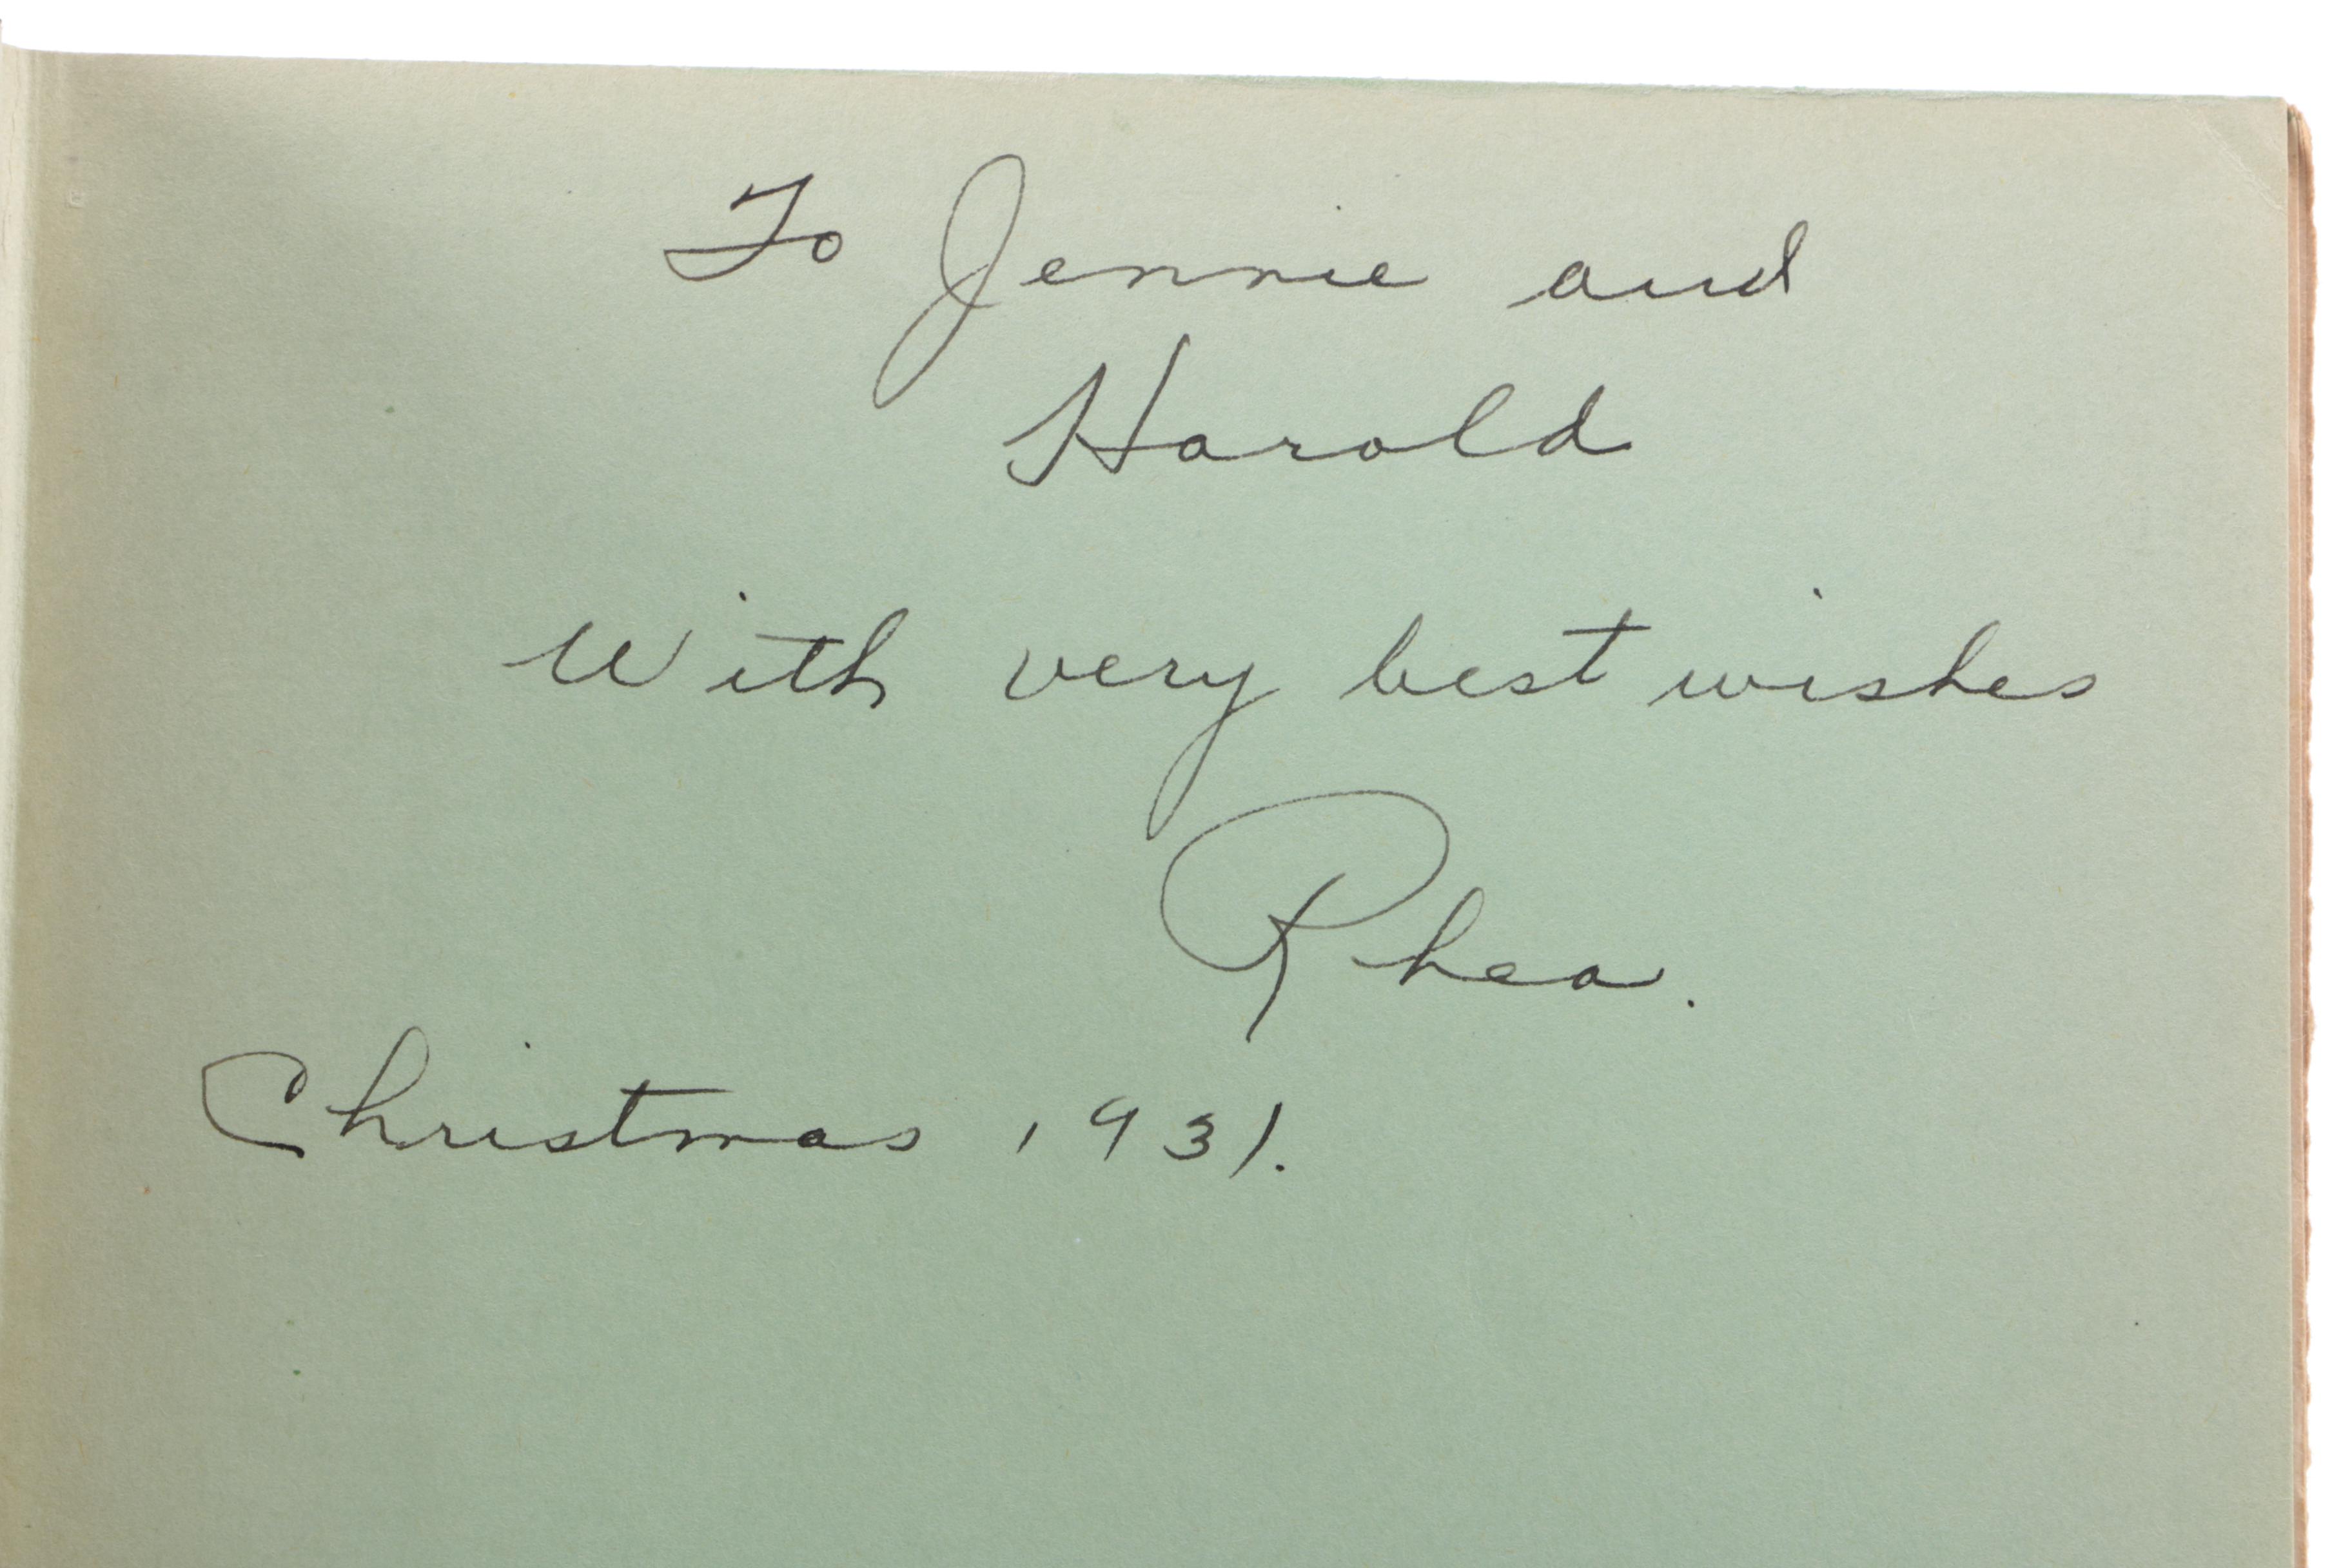 To Jennie and
Harold
With very best wishes
Rhea.
Christmas 1931.